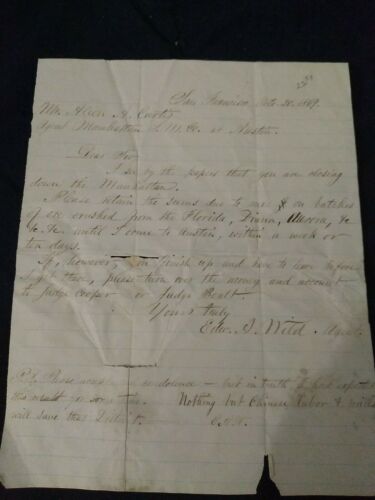 San Francisco, Feb. 20. 1869.
Mr. Allen A. Curtis
Agent Manhattan S. M. Co. at Austin.
Dear Sir
I see by the papers that you are closing
down the Manhattan.
Please retain the sums due to me on batches
of ore crushed from the Florida, Diana, Aurora, &c
&c. &c. until I come to Austin, within a week or
ten days.
If, however, you finish up and have to leave before
that time, please turn over the money and account
to Judge Cooper or Judge Beatt.
Yours truly
Edw. A. Wild Agent.
P.S. condolence - but in truth I had
this result for some time. Nothing but Chinese labor &
will save that District. E.A.W.